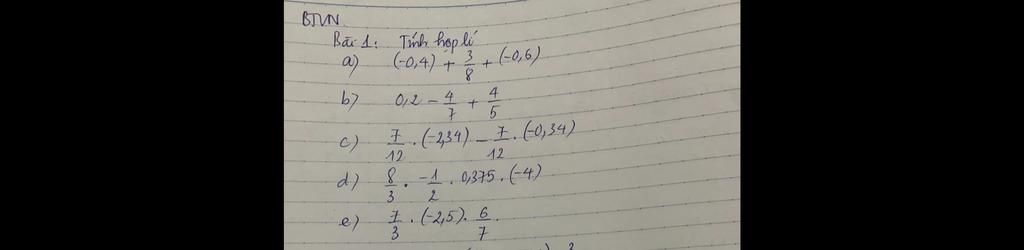 BTVN
Bài 1: Tính hợp lí
a) (-0,4) + 3/8 + (-0,6)
b) 0,2 - 4/7 + 4/5
c) 7/12 . (-2,34) - 7/12 . (-0,34)
d) 8/3 . -1/2 . 0,375 . (-4)
e) 7/3 . (-2,5) . 6/7